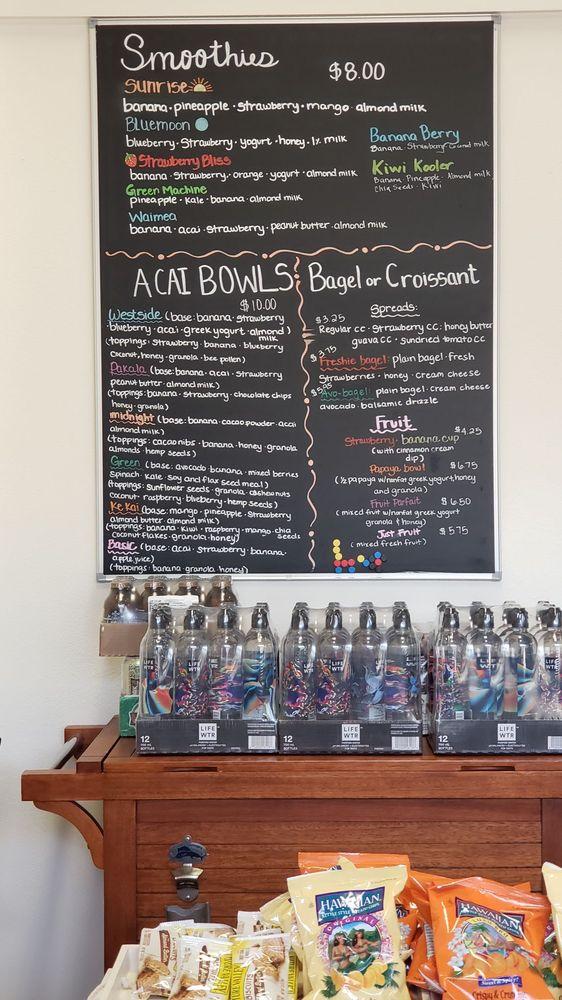 Smoothies
$8.00
Sunrise
banana · pineapple · strawberry · mango · almond milk
Bluemoon
blueberry · strawberry · yogurt · honey · 1% milk
Strawberry Bliss
banana · strawberry · orange · yogurt · almond milk
Green Machine
pineapple · kale · banana · almond milk
Waimea
banana · acai · strawberry · peanut butter · almond milk
Banana Berry
Banana · Strawberry · milk
Kiwi Kooler
Banana · Pineapple · Almond milk
Chia Seeds · Kiwi
ACAI BOWLS
$10.00
Westside (base: banana · strawberry
blueberry · acai · greek yogurt · almond milk)
(toppings · strawberry · banana · blueberry
coconut, honey · granola · bee pollen)
Pakala (base: banana · acai · strawberry
peanut butter · almond milk)
(toppings: banana · strawberry · chocolate chips
honey · granola)
midnight (base: banana · cacao powder · acai
almond milk)
(toppings: cacao nibs · banana · honey · granola
almonds · hemp seeds)
Green (base: avocado · banana · mixed berries
spinach · kale · soy and flax seed meal)
(toppings: sunflower seeds · granola · cashew nuts
coconut · raspberry · blueberry · hemp seeds)
Ke Kai (base: mango · pineapple · strawberry
almond butter · almond milk)
(toppings: banana · kiwi · raspberry · mango · chia seeds
coconut flakes · granola · honey)
Basic (base: acai · strawberry · banana ·
apple juice)
(toppings: banana · granola · honey)
Bagel or Croissant
Spreads:
$3.25
Regular CC · Strawberry CC · honey butter
guava CC · sundried tomato CC
$3.75
Freshie bagel: plain bagel · fresh
strawberries · honey · cream cheese
Avo-bagel: plain bagel · cream cheese
avocado · balsamic drazzle
Fruit
$4.25
Strawberry · banana cup
(with cinnamon cream
dip)
Papaya bowl
$6.75
(½ papaya w/nonfat greek yogurt, honey
and granola)
Fruit Parfait
$6.50
(mixed fruit w/nonfat greek yogurt
granola & honey)
Just Fruit
$5.75
(mixed fresh fruit)
LIFE
WTR
LIFE
WTR
LIFE
WTR
LIFE
WTR
12
LIFE
WTR
12
LIFE
WTR
12
LIFE
WTR
HAWAIIAN
KETTLE STYLE POTATO CHIPS
ORIGINAL
HAWAIIAN
Sweet & Spicy!
Crispy & Crun